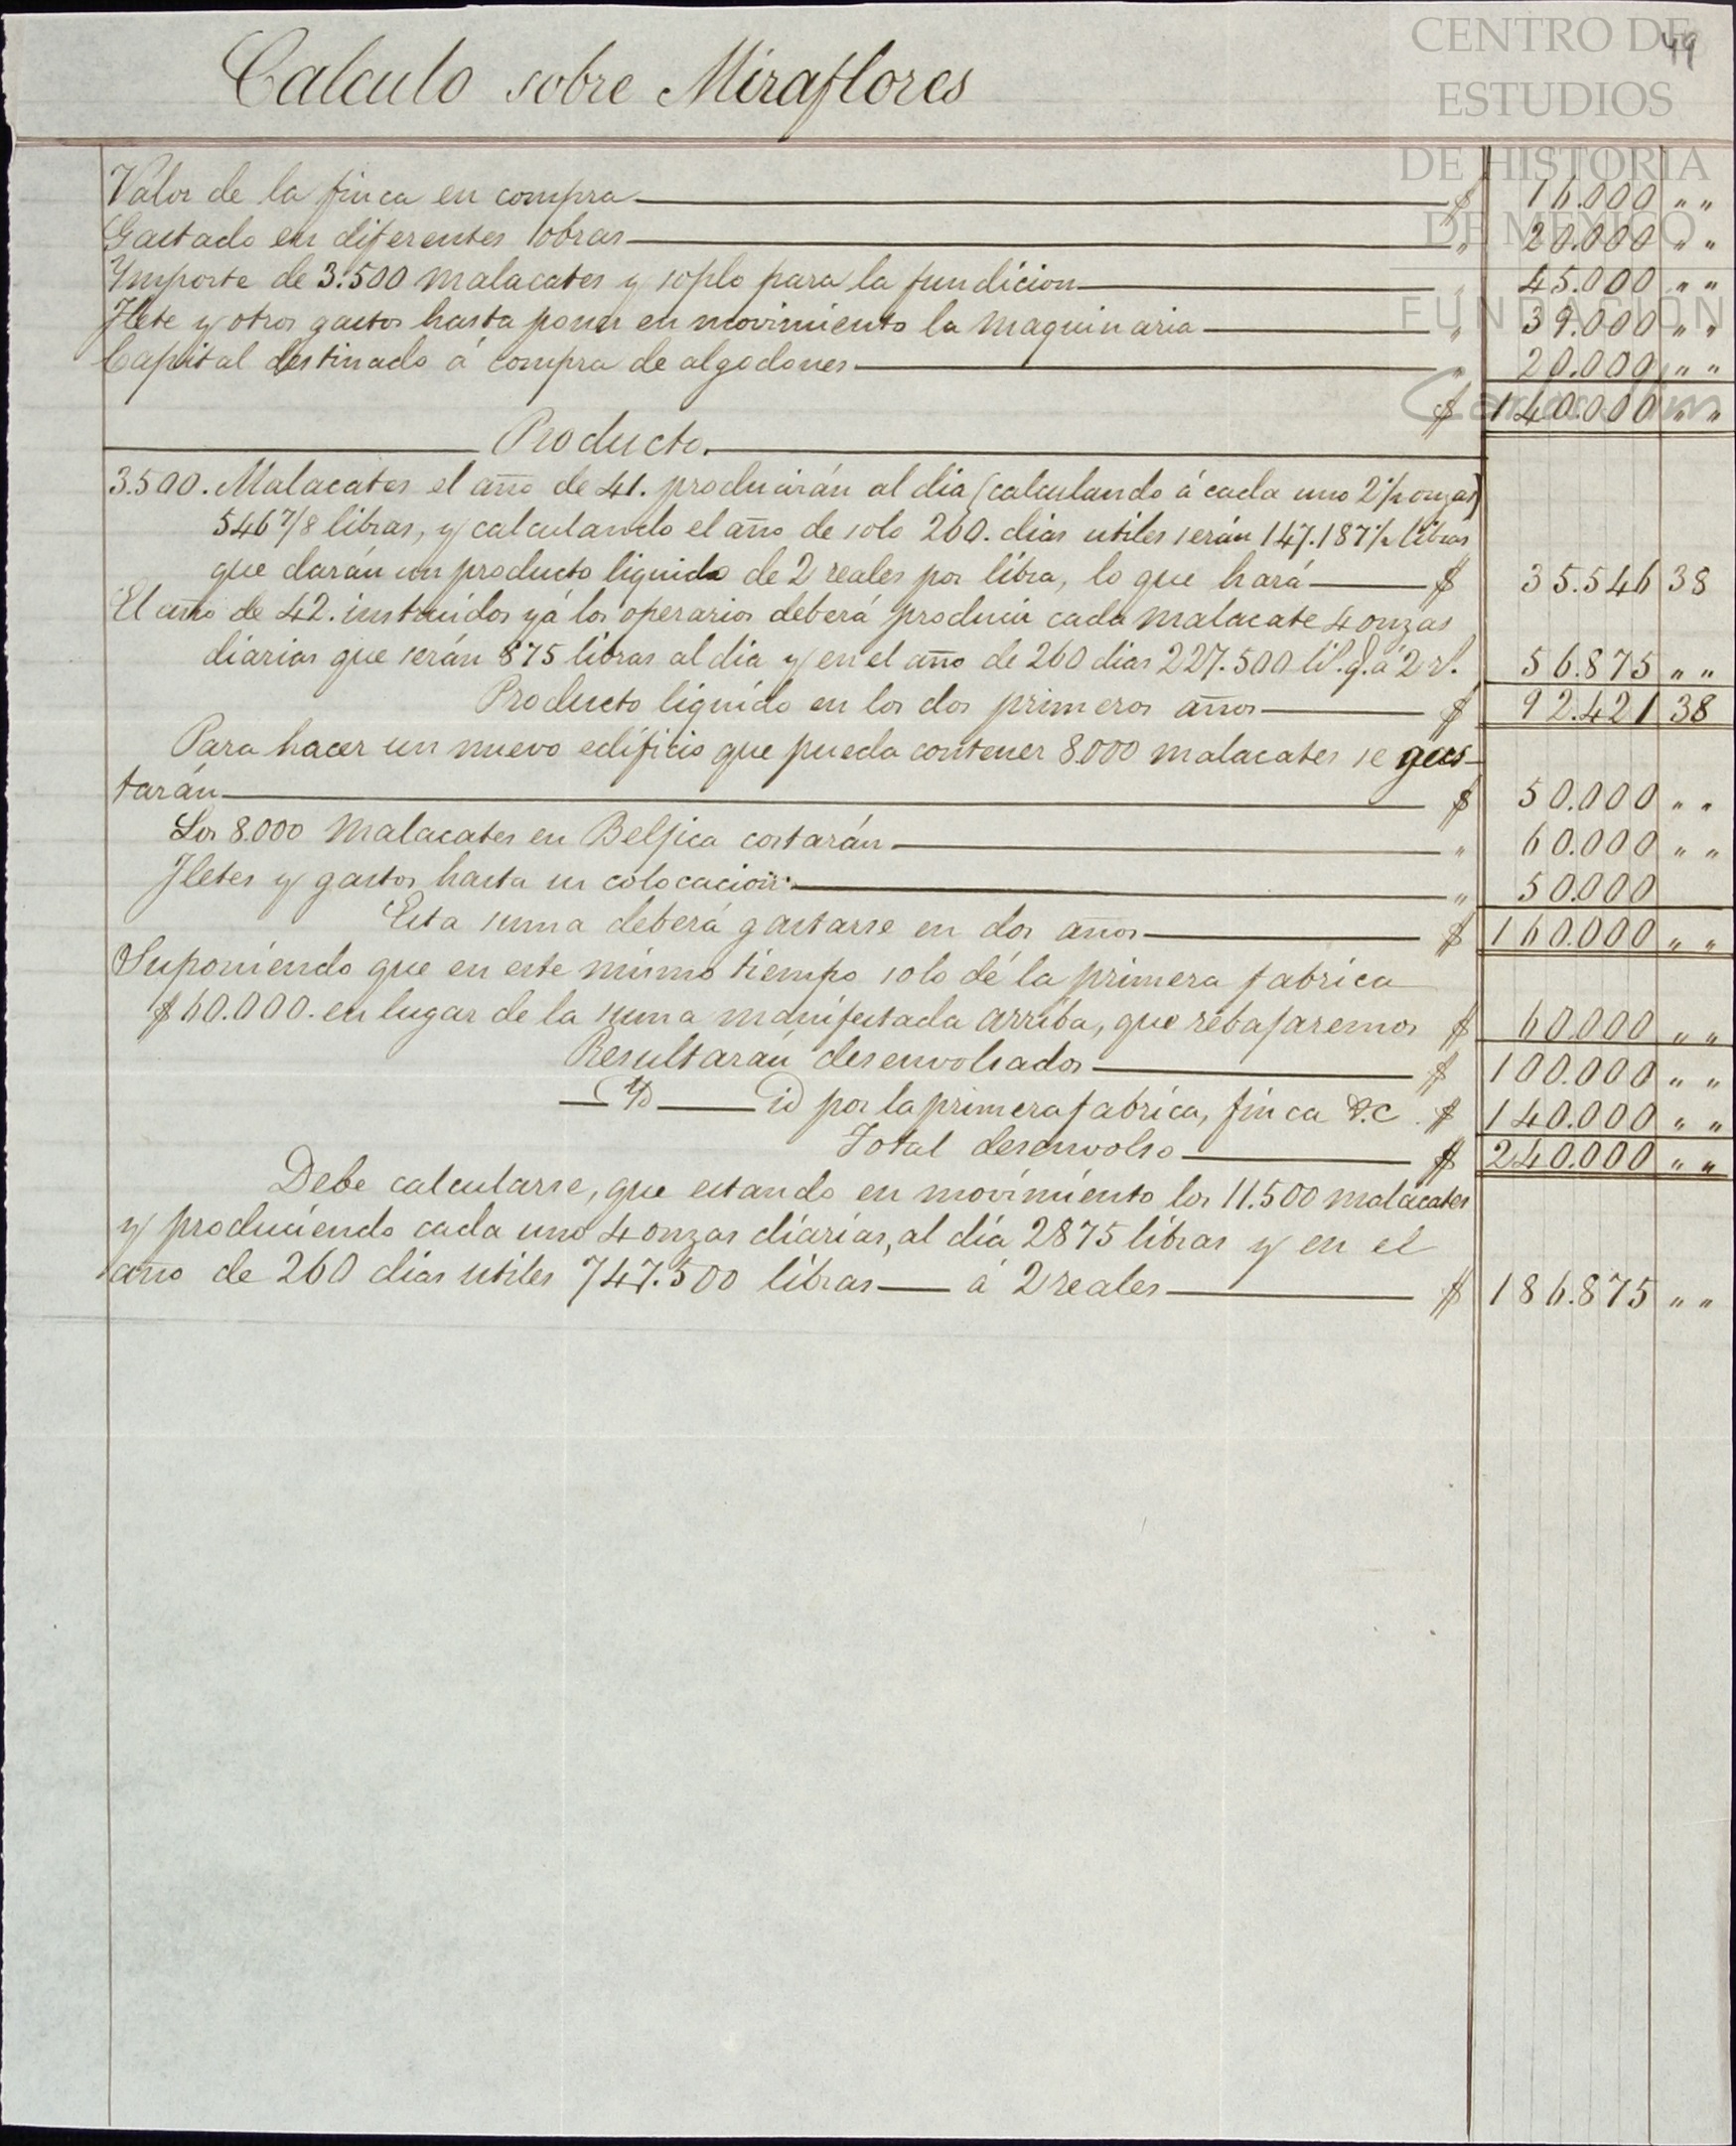 Calculo sobre Miraflores
49
CENTRO DE
ESTUDIOS
DE HISTORIA
DE MÉXICO
FUNDACIÓN
Valor de la finca en compra $ 16.000 " "
Gastado en diferentes obras " 20.000 " "
Ymporte de 3.500 malacates y soplo para la fundicion " 45.000 " "
Flete y otros gastos hasta poner en movimiento la maquinaria " 39.000 " "
Capital destinado á compra de algodones " 20.000 " "
$ 140.000 " "
Producto.
3.500. Malacates el año de 41. producirán al dia (calculando á cada uno 2 1/2 onzas)
546 7/8 libras, y calculando el año de solo 260. dias utiles serán 147.187 1/2 libras
que darán un producto liquido de 2 reales por libra, lo que hará $ 35.546 38
El año de 42. instruidos yá los operarios deberá producir cada malacate 4 onzas
diarias que serán 875 libras al dia y en el año de 260 dias 227.500 lib. q. á 2 rs. 56.875 " "
Producto liquido en los dos primeros años $ 92.421 38
Para hacer un nuevo edificio que pueda contener 8.000 malacates se gas-
tarán $ 50.000 " "
Los 8.000 Malacates en Beljica costarán " 60.000 " "
Fletes y gastos hasta su colocacion " 50.000
Esta suma deberá gastarse en dos años $ 160.000 " "
Suponiendo que en este mismo tiempo solo dé la primera fabrica
$ 60.000. en lugar de la suma manifestada arriba, que rebajaremos $ 60.000 " "
Resultarán desenvolsados $ 100.000 " "
Yd id por la primera fabrica, finca &.c. $ 140.000 " "
Total desenvolso $ 240.000 " "
Debe calcularse, que estando en movimiento los 11.500 malacates
y produciendo cada uno 4 onzas diarias, al día 2875 libras y en el
año de 260 dias utiles 747.500 libras á 2 reales $ 186.875 " "